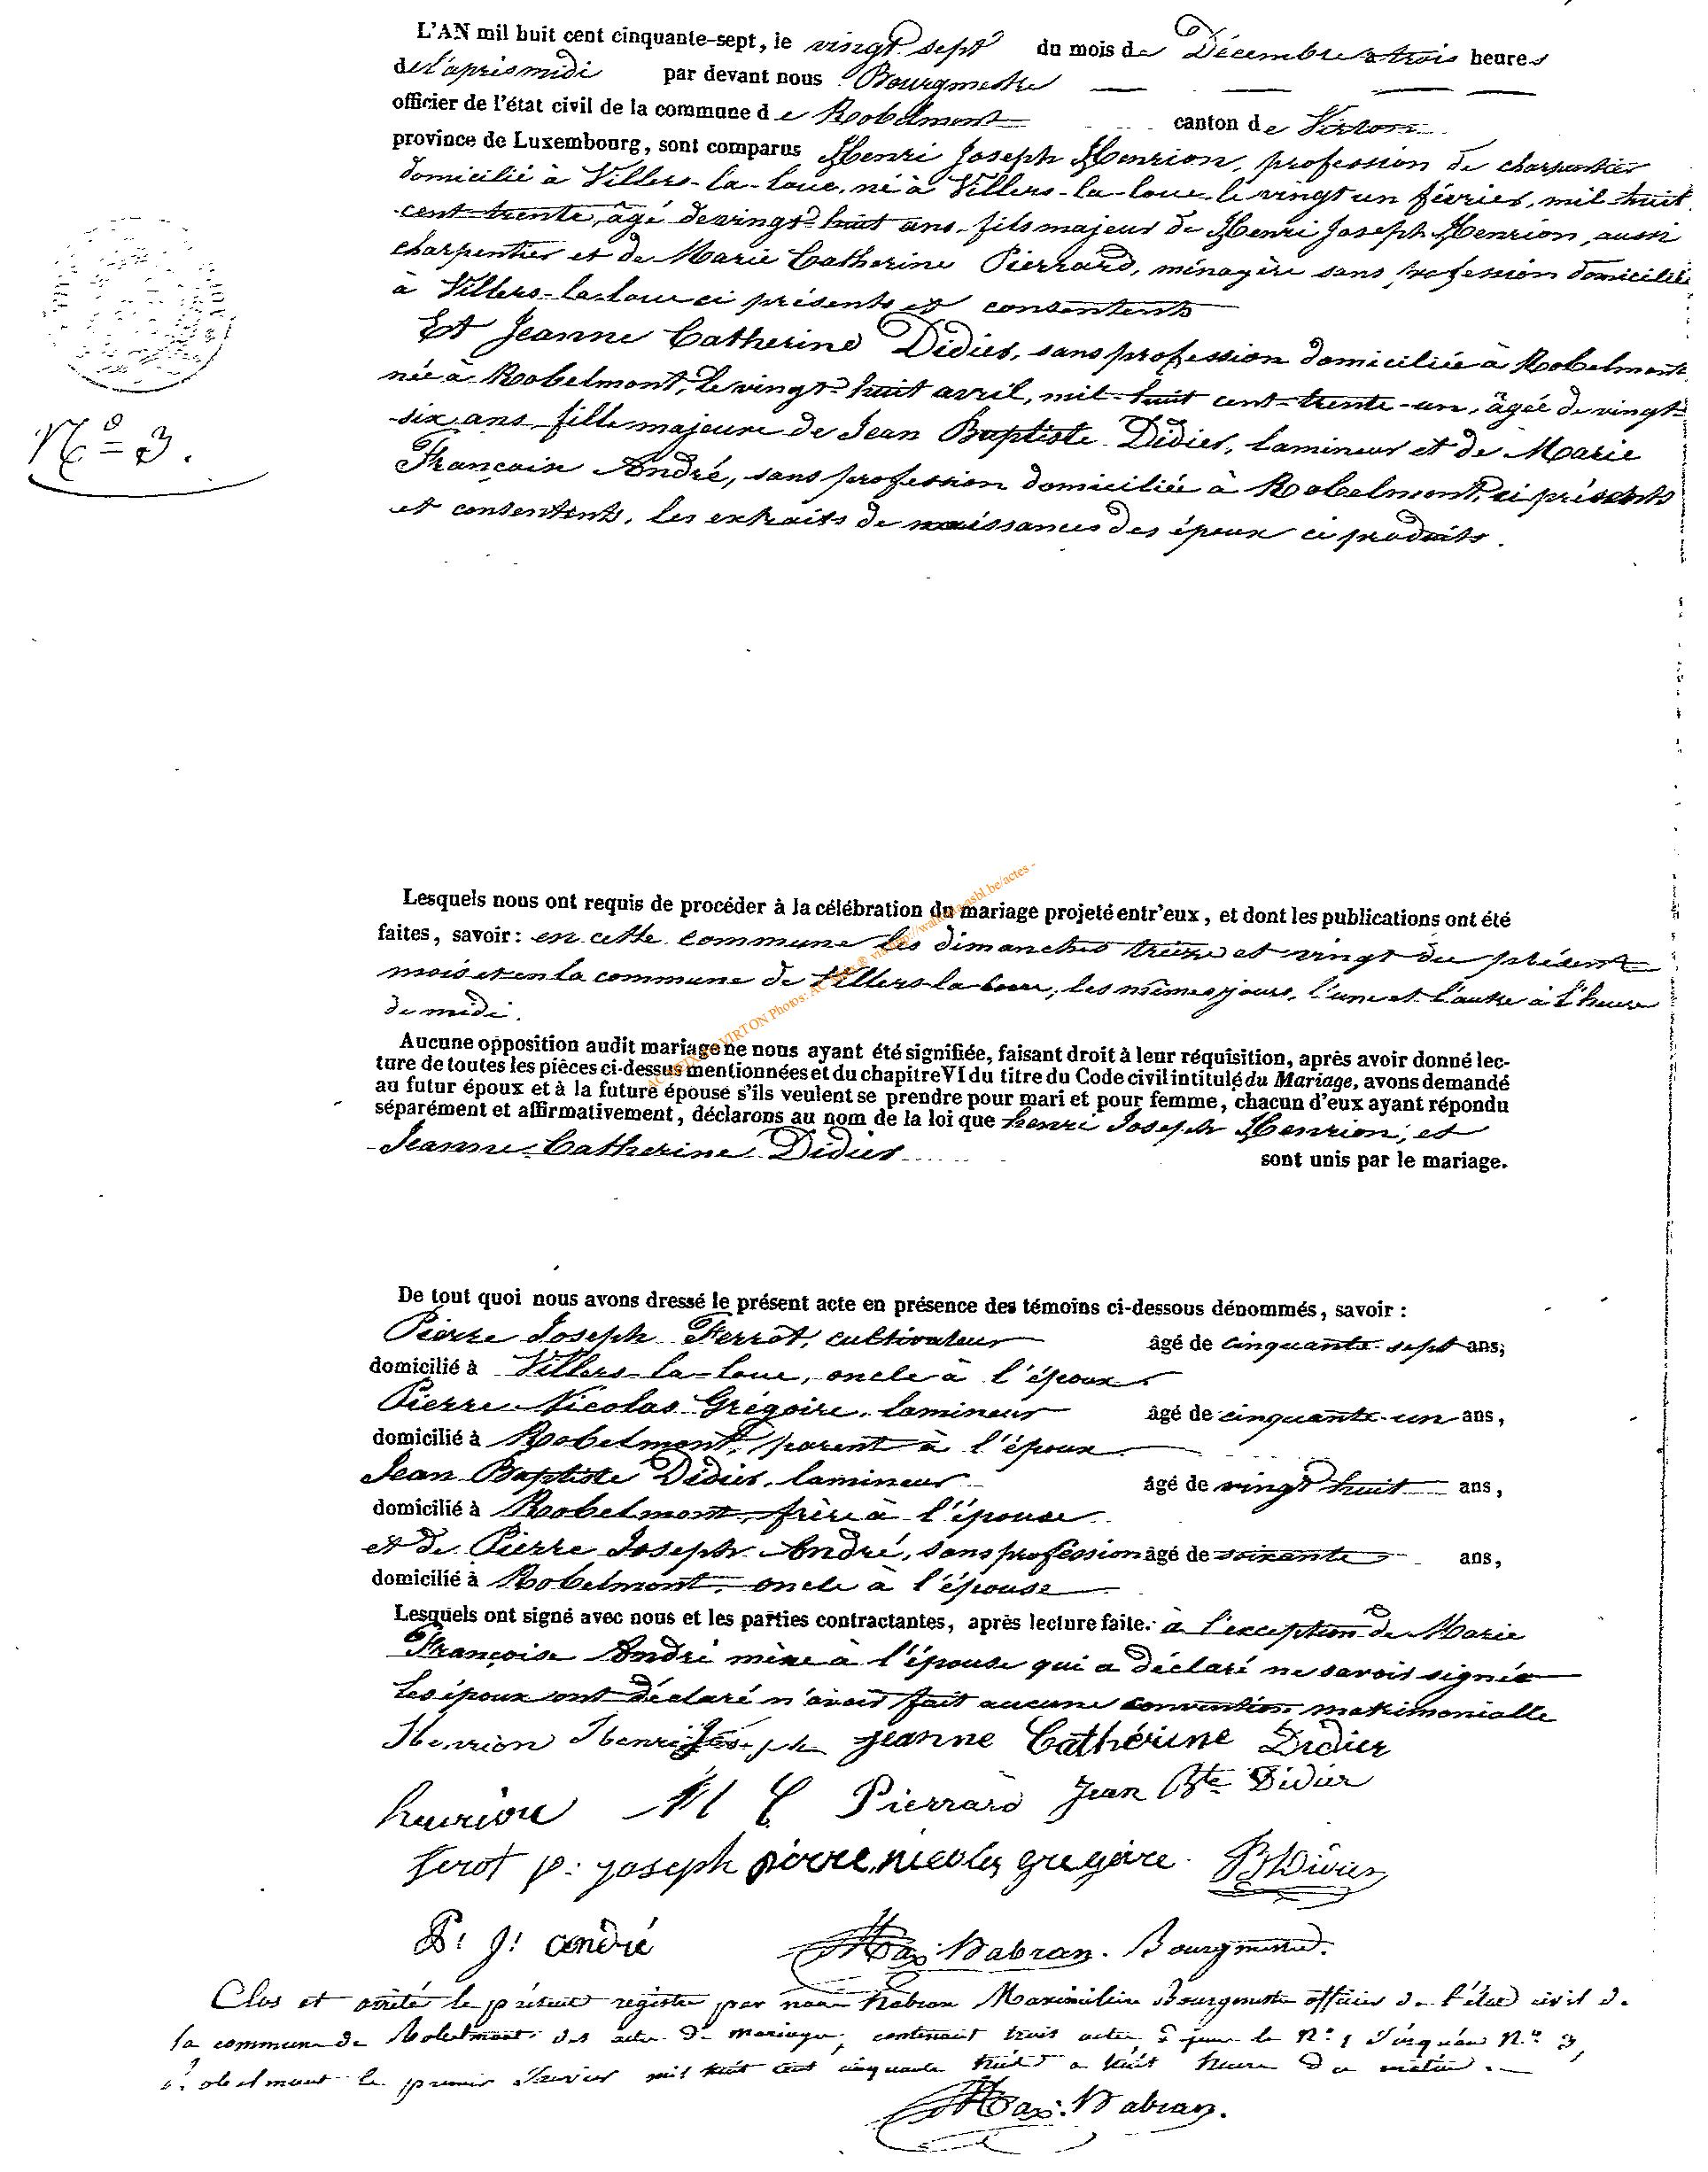 L'AN mil huit cent cinquante-sept, le vingt sept du mois de Décembre à trois heures
de l'après midi par devant nous Bourgmestre
officier de l'état civil de la commune de Robelmont canton de Virton
province de Luxembourg, sont comparus Henri Joseph Henrion, profession de charpentier
domicilié à Villers-la-loue, né à Villers-la-loue le vingt un février, mil huit
cent trente, âgé de vingt huit ans, fils majeur de Henri Joseph Henrion, aussi
charpentier et de Marie Catherine Pierrard, ménagère sans profession domiciliés
à Villers-la-loue ci présents et consentents
Et Jeanne Catherine Didier, sans profession domiciliée à Robelmont
née à Robelmont, le vingt huit avril, mil huit cent trente-un, âgée de vingt
six ans fille majeure de Jean Baptiste Didier, lamineur et de Marie
Françoise André, sans profession domiciliée à Robelmont, ci présents
et consentents, les extraits de naissances des époux ci produits.
N° 3.
Lesquels nous ont requis de procéder à la célébration du mariage projeté entr'eux, et dont les publications ont été
faites, savoir: en cette commune les dimanches treize et vingt du présent
mois et en la commune de Villers-la-loue, les mêmes jours, l'une et l'autre à l'heure
de midi.
Aucune opposition audit mariage ne nous ayant été signifiée, faisant droit à leur réquisition, après avoir donné lec-
ture de toutes les pièces ci-dessus mentionnées et du chapitre VI du titre du Code civil intitulé du Mariage, avons demandé
au futur époux et à la future épouse s'ils veulent se prendre pour mari et pour femme, chacun d'eux ayant répondu
séparément et affirmativement, déclarons au nom de la loi que henri Joseph Henrion, et
Jeanne Catherine Didier sont unis par le mariage.
De tout quoi nous avons dressé le présent acte en présence des témoins ci-dessous dénommés, savoir :
Pierre Joseph Ferrot, cultivateur âgé de cinquante sept ans;
domicilié à Villers-la-loue, oncle à l'époux.
Pierre Nicolas Grégoire, lamineur âgé de cinquante-un ans,
domicilié à Robelmont, parent à l'époux
Jean Baptiste Didier, lamineur âgé de vingt huit ans,
domicilié à Robelmont, frère à l'épouse
et de Pierre Joseph André, sans profession âgé de soixante ans,
domicilié à Robelmont, oncle à l'épouse
Lesquels ont signé avec nous et les parties contractantes, après lecture faite. à l'exception de Marie
Françoise André mère à l'épouse qui a déclaré ne savoir signée
Les époux ont déclaré n'avoir fait aucune convention matrimonialle
Henrion Henri Joseph Jeanne Cathérine Didier
henrion M C Pierrard Jean Bte Didier
ferot p: joseph pierre nicolas gregoire. JB Didier
P: J: andré Max: Nabran. Bourgmestre.
Clos et arrêté le présent registre par nous Nabran Maximilien Bourgmestre officier de l'état civil de
la commune de Robelmont des actes de mariages, contenant trois actes à jour le N° 1 jusqu'au N° 3,
à Robelmont le premier Janvier mil huit cent cinquante huit à huit heure du matin.
Max: Nabran.